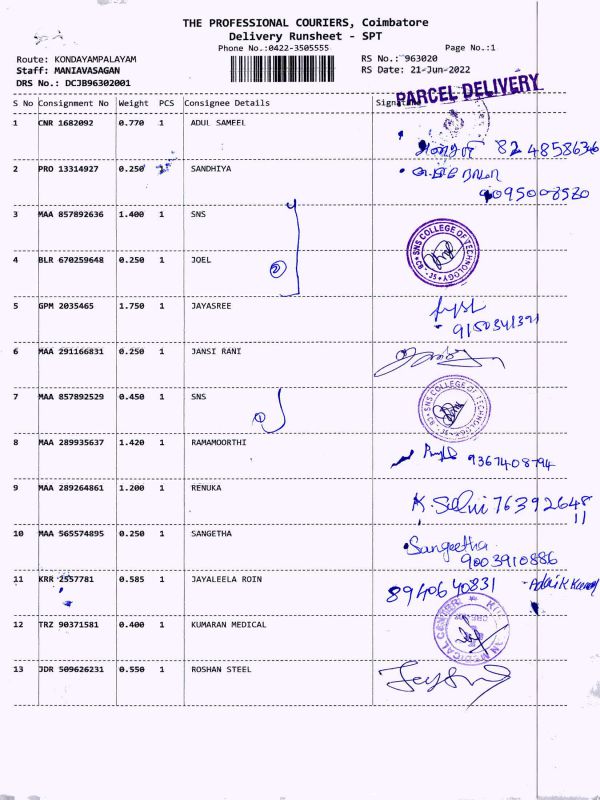 THE PROFESSIONAL COURIERS, Coimbatore
Delivery Runsheet - SPT
Phone No.:0422-3505555
Page No.:1
Route: KONDAYAMPALAYAM
RS No.: 963020
Staff: MANIAVASAGAN
RS Date: 21-Jun-2022
DRS No.: DCJB96302001
PARCEL DELIVERY
S No Consignment No Weight PCS Consignee Details
1 CNR 1682092 0.770 1 ADUL SAMEEL
82 4858636
2 PRO 13314927 0.250 SANDHIYA
9095008520
3 MAA 857892636 1.400 1 SNS
SNS COLLEGE OF TECHNOLOGY CB-35
4 BLR 670259648 0.250 1 JOEL
2
5 GPM 2035465 1.750 1 JAYASREE
9150341391
6 MAA 291166831 0.250 1 JANSI RANI
7 MAA 857892529 0.450 1 SNS
1
SNS COLLEGE OF TECHNOLOGY
8 MAA 289935637 1.420 1 RAMAMOORTHI
9367408794
9 MAA 289264861 1.200 1 RENUKA
K. Selvi 76392648
11
10 MAA 565574895 0.250 1 SANGETHA
Sangeetha
9003910886
11 KRR 2557781 0.585 1 JAYALEELA ROIN
8940640831
12 TRZ 90371581 0.400 1 KUMARAN MEDICAL
MEDICAL CENTER
13 JDR 509626231 0.550 1 ROSHAN STEEL